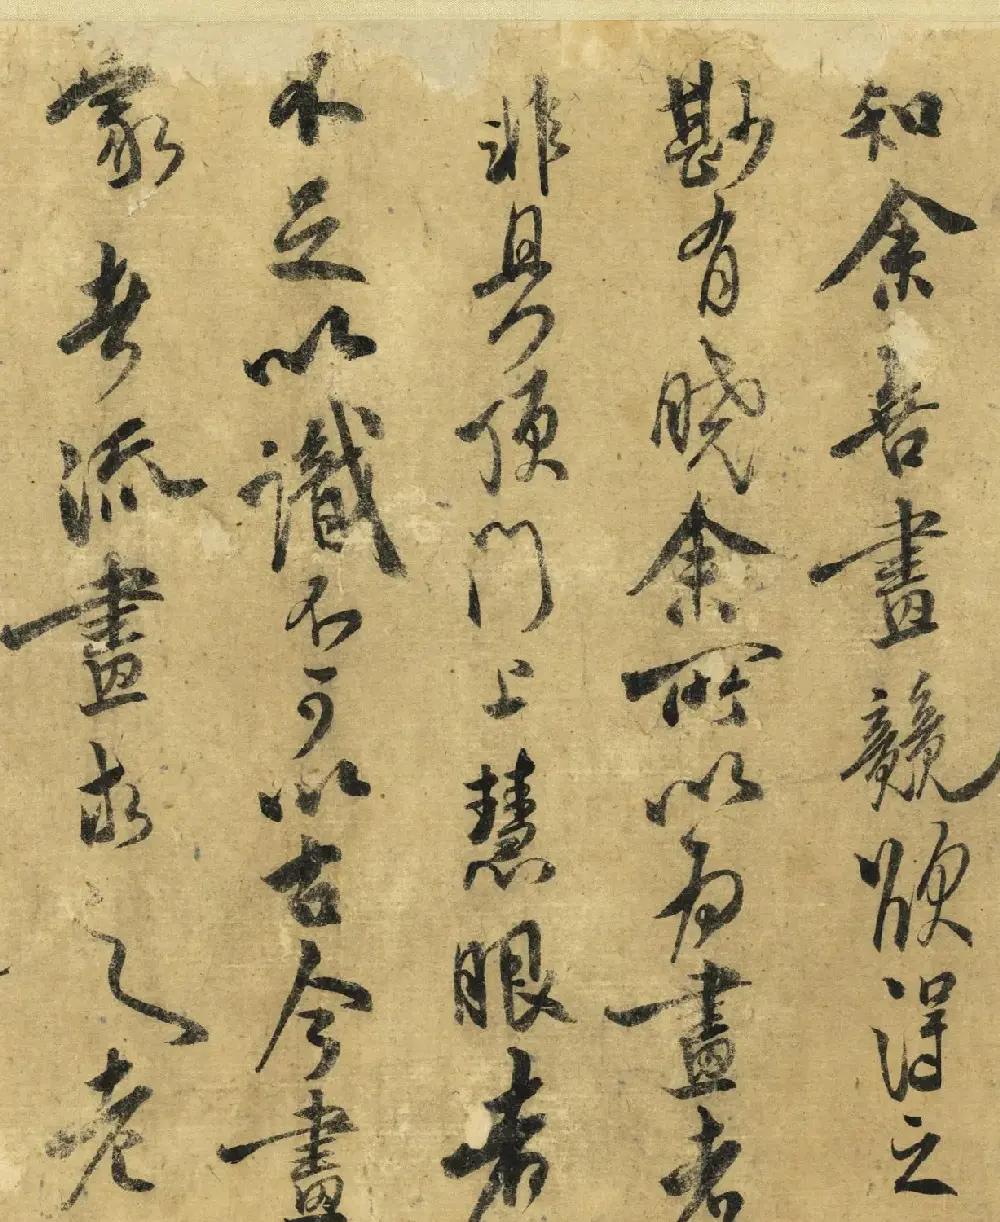 知余善畫競欲得之
尟有曉余所以為畫者
非具頂門上慧眼者
不足以識不可以古今畫
家者流畫求之老